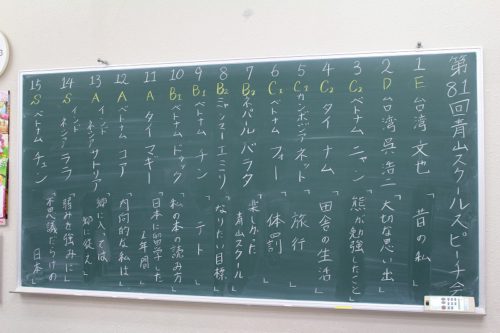 第81回青山スクールスピーチ会
1 E 台湾 文也 「昔の私」
2 D 台湾 呉浩二 「大切な思い出」
3 C2 ベトナム ニャン 「熊が勉強したこと」
4 C2 タイ ナム 「田舎の生活」
5 C1 カンボジア ネット 「旅行」
6 C1 ベトナム フォー 「体罰」
7 B2 ネパール バラタ 「楽しかった青山スクール」
8 B2 ミャンマー エミリ 「なりたい目標」
9 B1 ベトナム チン 「テト」
10 B1 ベトナム ドゥック 「私の本の読み方」
11 A タイ マギー 「日本に留学した1年間」
12 A ベトナム コア 「内向的な私は」
13 A インドネシア サトリア 「郷に入っては郷に従え」
14 S インドネシア ララ 「弱みを強みに」
15 S ベトナム チュン 「不思議だらけの日本」